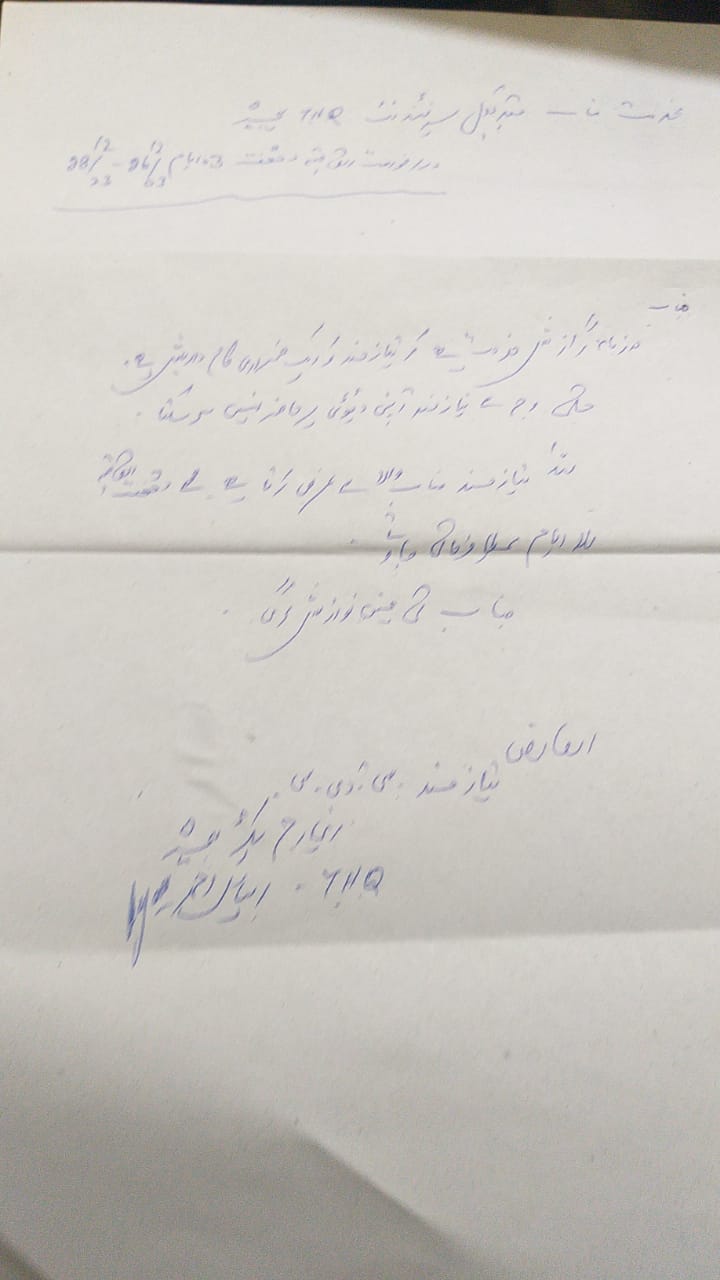 بخدمت جناب میڈیکل سپرنٹنڈنٹ THQ
درخواست رخصت 03 ایام 26/12/23 - 28/12/23
جناب
مؤدبانہ گزارش خدمت ہے کہ نیازمند کو ایک ضروری کام درپیش ہے۔
جس کی وجہ سے نیازمند اپنی ڈیوٹی پر حاضر نہیں ہو سکتا۔
لہٰذا نیازمند جناب والا سے عرض کرتا ہے کہ رخصت اتفاقیہ
ایام عطا فرمائی جاوے۔
جناب کی عین نوازش ہوگی۔
العارض
نیازمند سی۔ڈی۔سی۔
انچارج
THQ